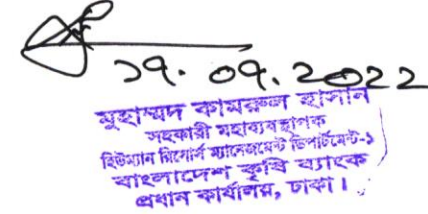 ১৭. ০৭. ২০২২
মুহাম্মদ কামরুল হাসান
সহকারী মহাব্যবস্থাপক
হিউম্যান রিসোর্স ম্যানেজমেন্ট ডিপার্টমেন্ট-১
বাংলাদেশ কৃষি ব্যাংক
প্রধান কার্যালয়, ঢাকা।